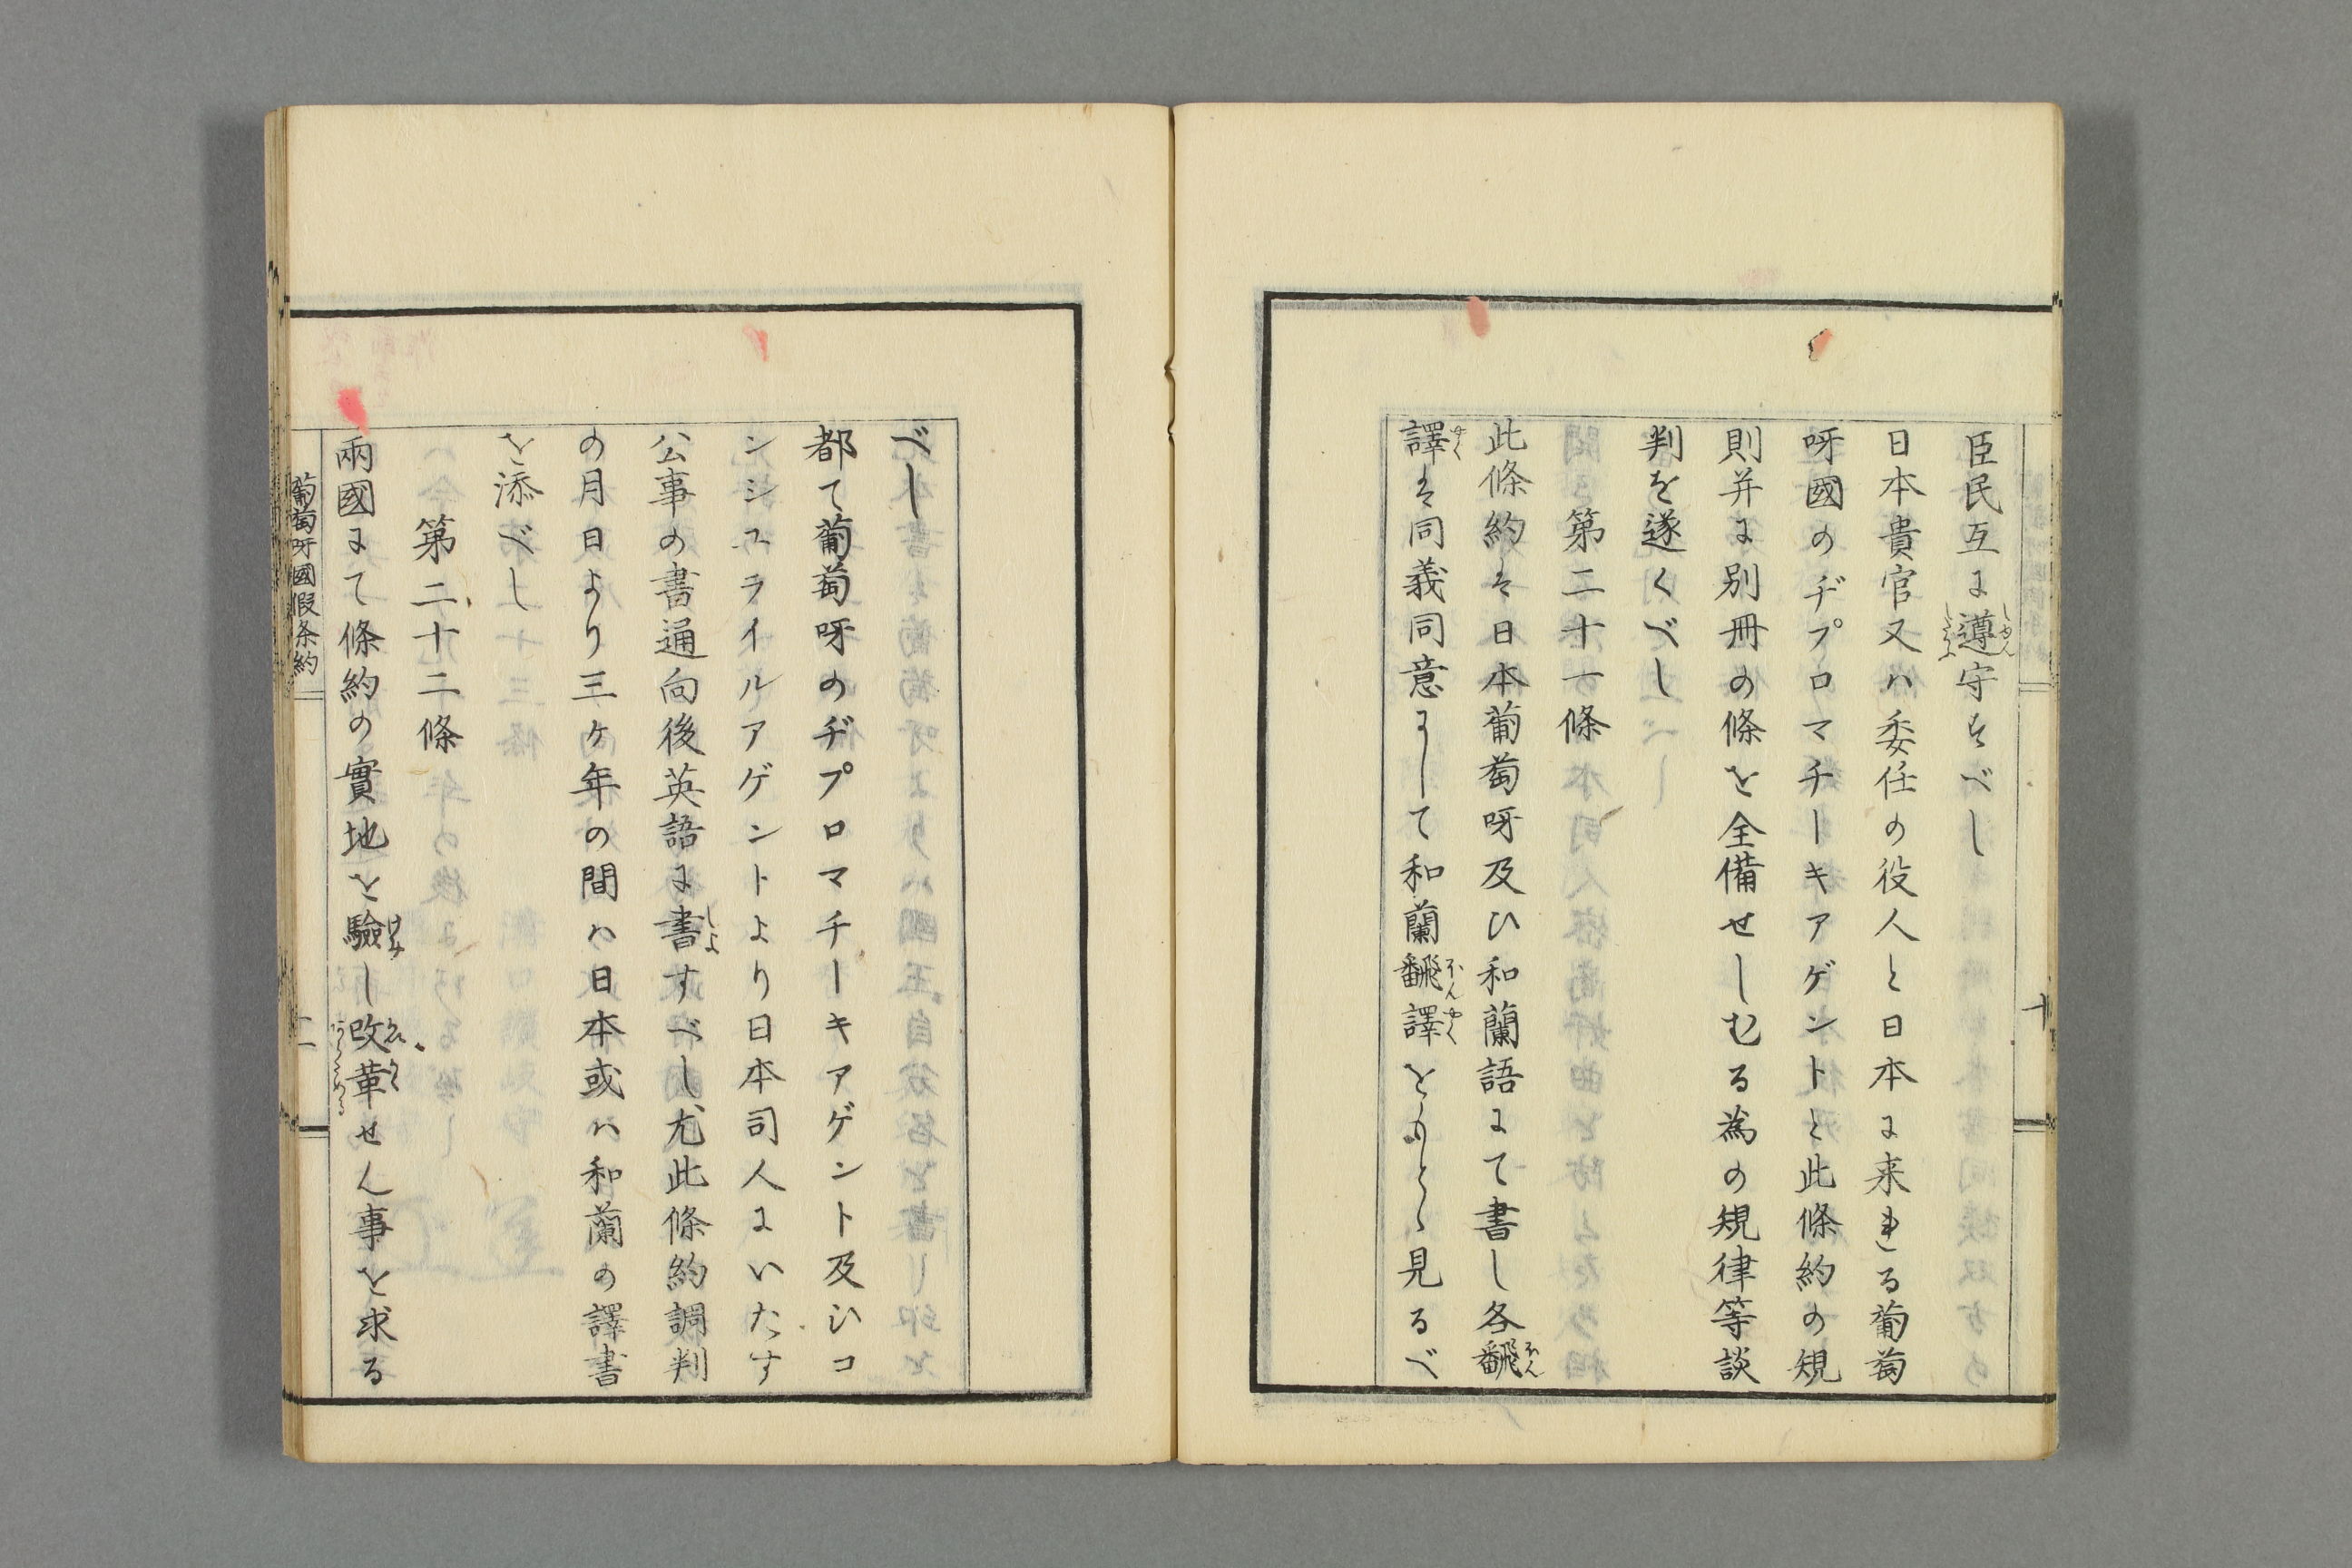 臣民互に遵守すべし
日本貴官又ハ委任の役人と日本に来れる葡萄
呀國のヂプロマチーキアゲントと此條約の規
則并に別冊の條を全備せしむる為の規律等談
判を遂くべし
第二十一條
此條約は日本葡萄呀及ひ和蘭語にて書し各飜
譯は同義同意にして和蘭飜譯をもとゝ見るべ
べし
都て葡萄呀のヂプロマチーキアゲント及ひコ
ンシユライルアゲントより日本司人にいたす
公事の書通向後英語に書すべし尤此條約調判
の月日より三ケ年の間ハ日本或ハ和蘭の譯書
を添べし
第二十二條
兩國にて條約の實地を驗し改革せん事を求る
葡萄呀國假条約